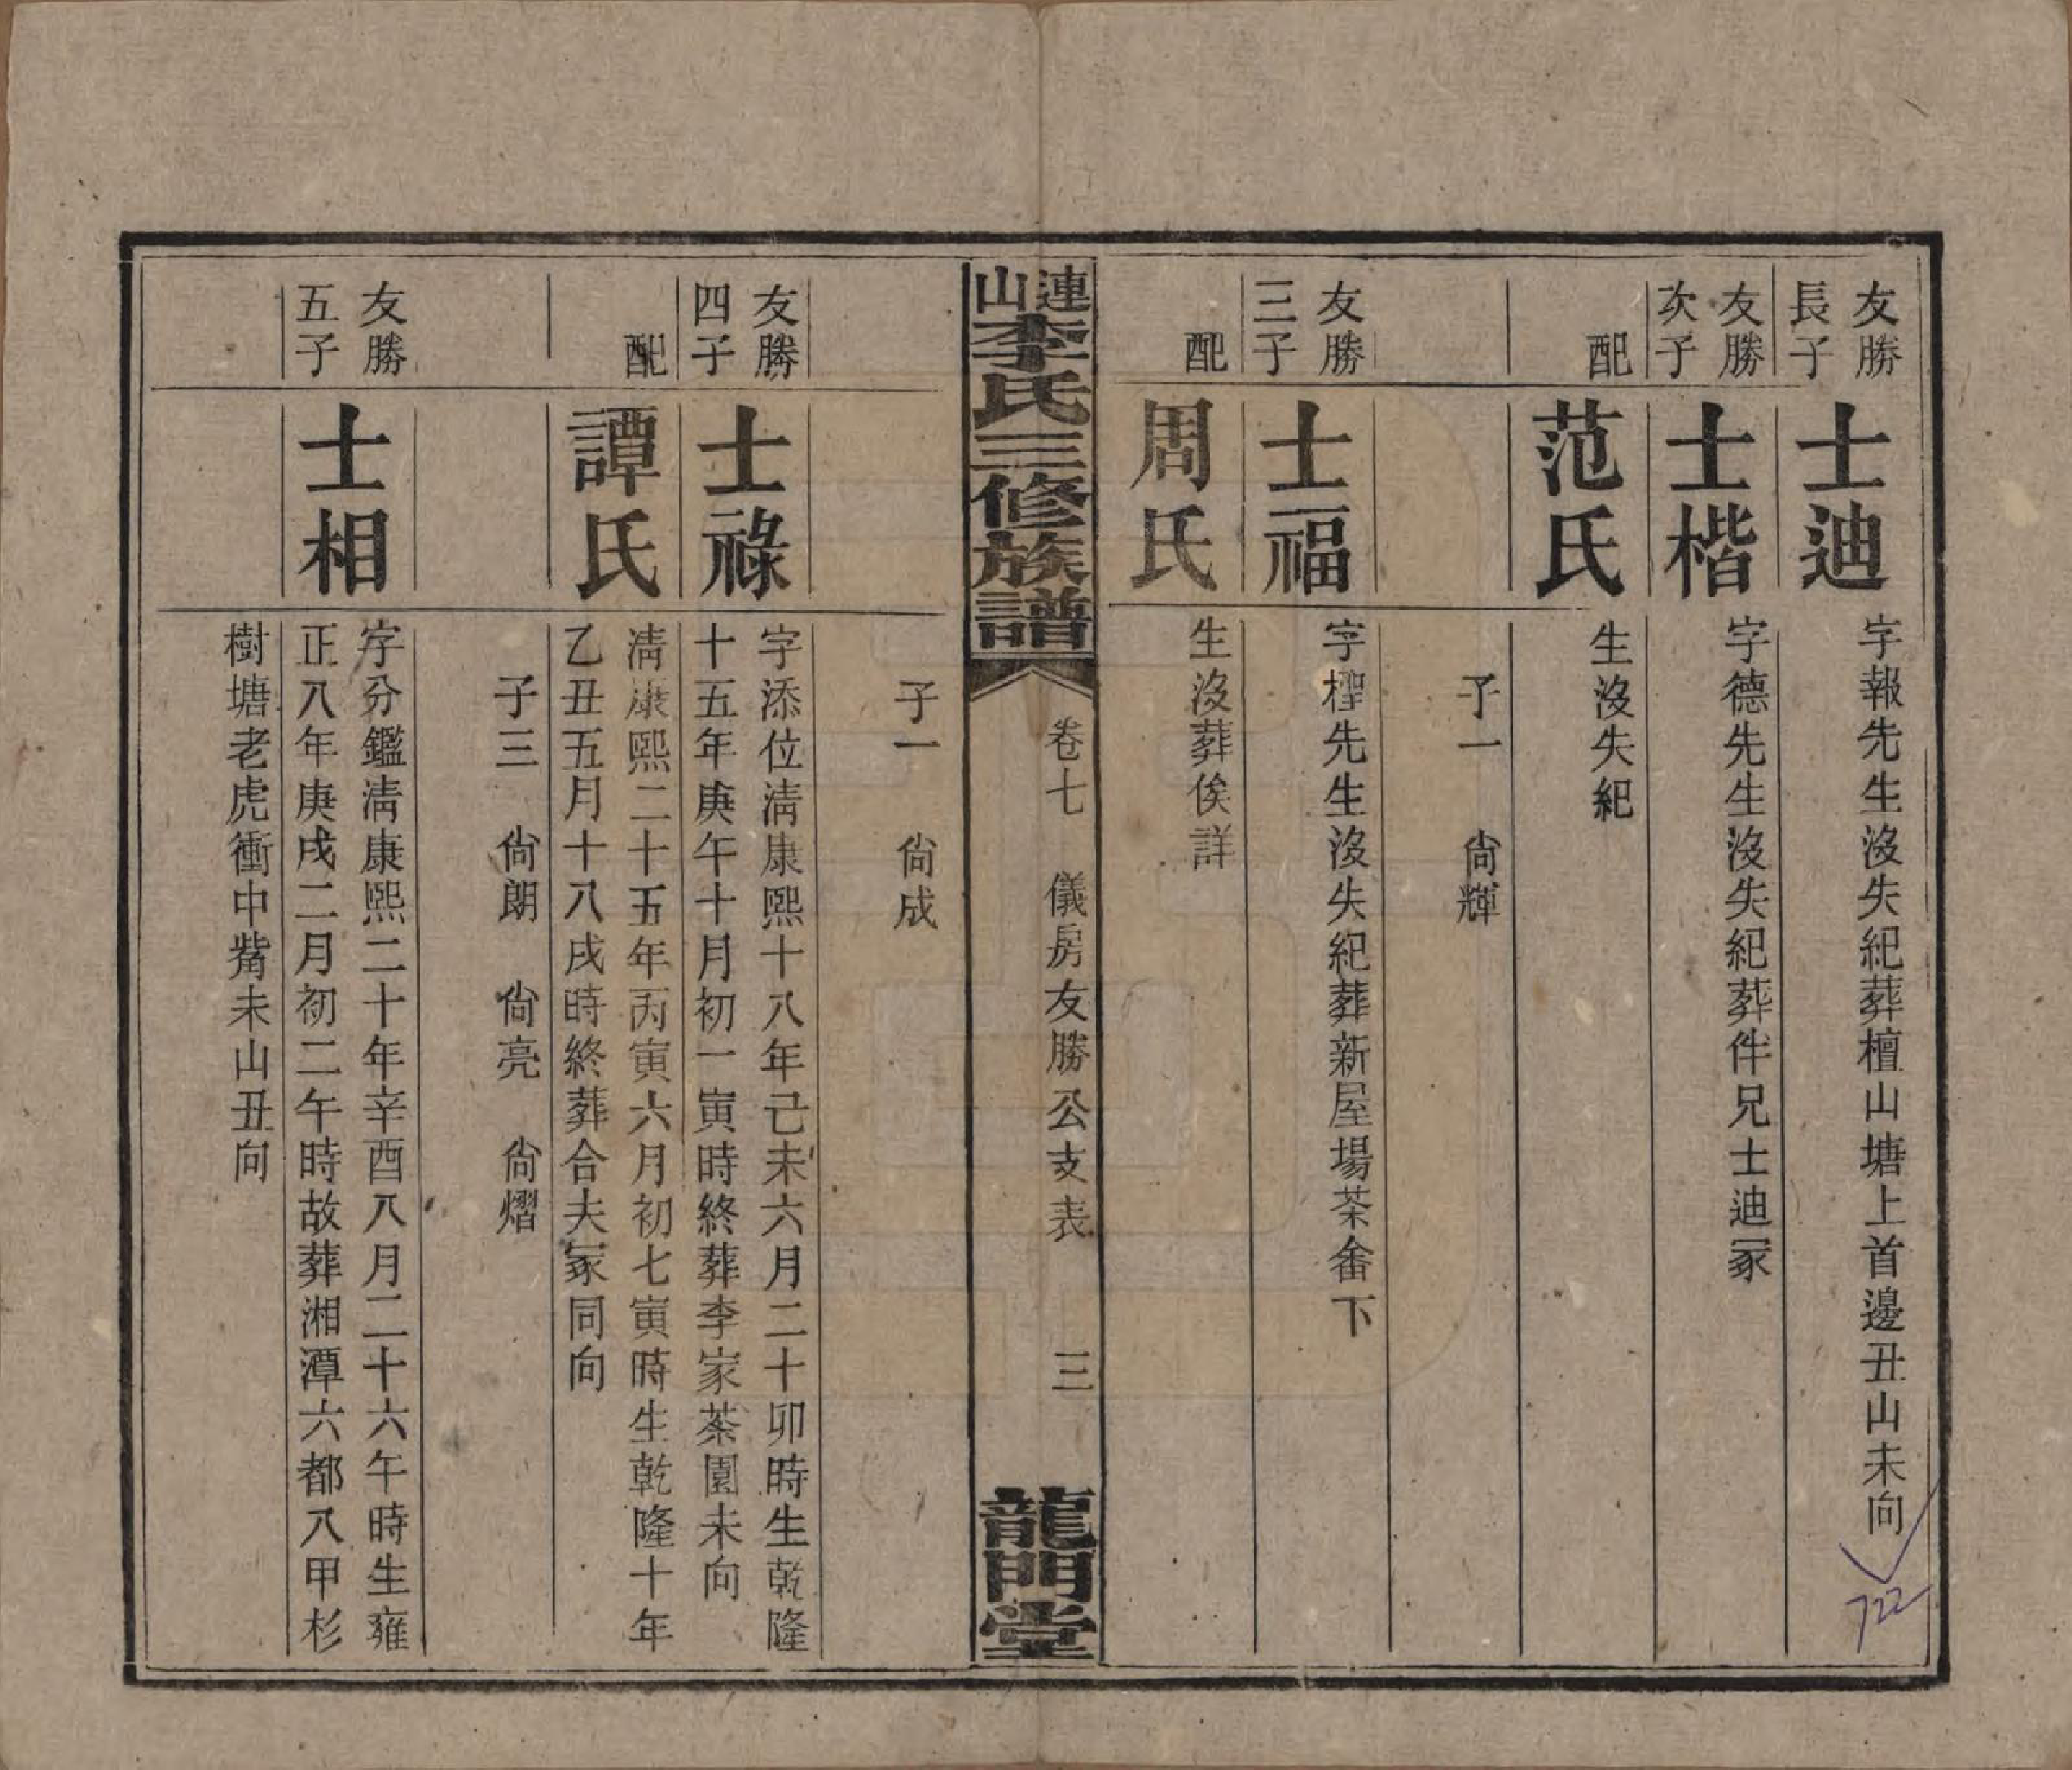 友勝長子
士迪
字報先生沒失紀葬檀山塘上首邊丑山未向
友勝次子
士楷
字德先生沒失紀葬伴兄士迪冢
配
范氏
生沒失紀
子一　尙輝
友勝三子
士福
字檉先生沒失紀葬新屋場茶畬下
配
周氏
生沒葬俟詳
連山李氏三修族譜
卷七　儀房友勝公支表　三
龍門堂
子一　尙成
友勝四子
士祿
字添位淸康熙十八年己未六月二十卯時生乾隆
十五年庚午十月初一寅時終葬李家茶園未向
配
譚氏
淸康熙二十五年丙寅六月初七寅時生乾隆十年
乙丑五月十八戌時終葬合夫冢同向
子三　尙朗　尙亮　尙熠
友勝五子
士相
字分鑑淸康熙二十年辛酉八月二十六午時生雍
正八年庚戌二月初二午時故葬湘潭六都八甲杉
樹塘老虎衝中嘴未山丑向
722